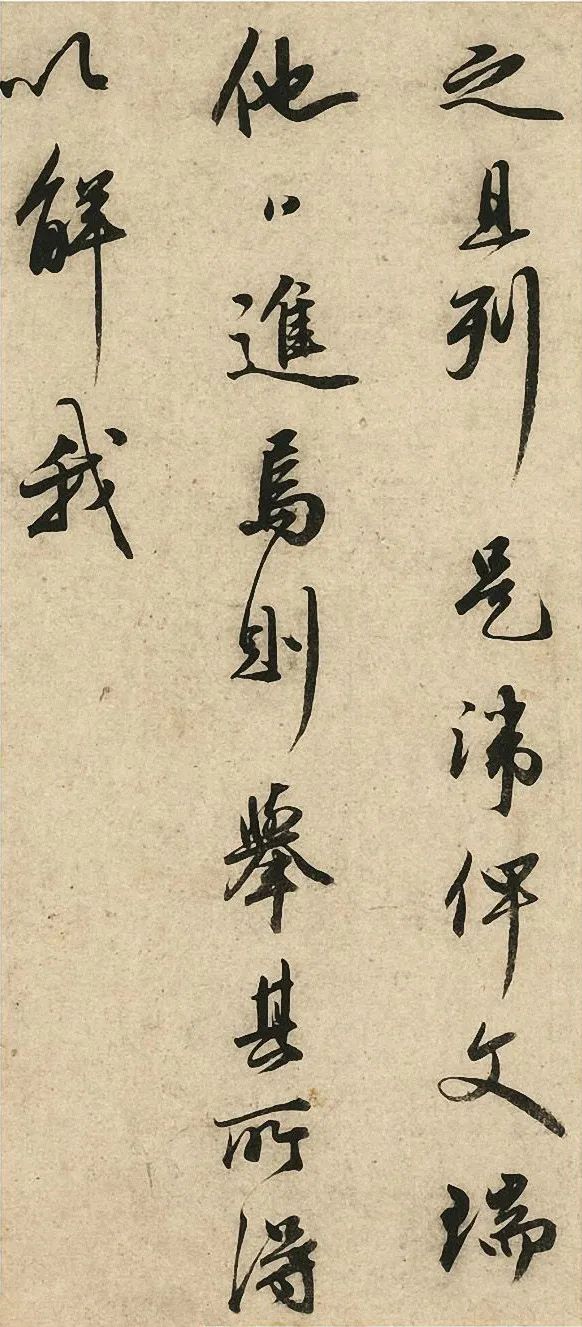 之且列是俾文瑞
他日進焉則舉其所得
以解我